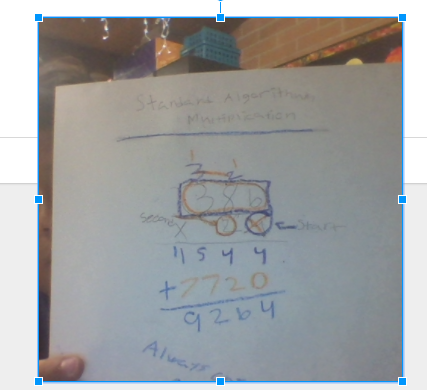 Standard Algorithm
Multiplication
1 1
3 2
386
second X 24 ← Start
1544
+7720
9264
Always